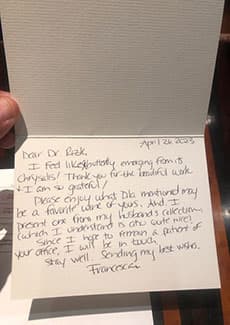 April 26 2023
Dear Dr. Rizk,
I feel like a butterfly emerging from its
chrysalis! Thank you for the beautiful work
+ I am so grateful!
Please enjoy what Dib mentioned may
be a favorite wine of yours. And, I
present one from my husband's collection,
(which I understand is also quite nice!)
Since I hope to remain a patient of
your office, I will be in touch.
Stay well. Sending my best wishes.
Francesca